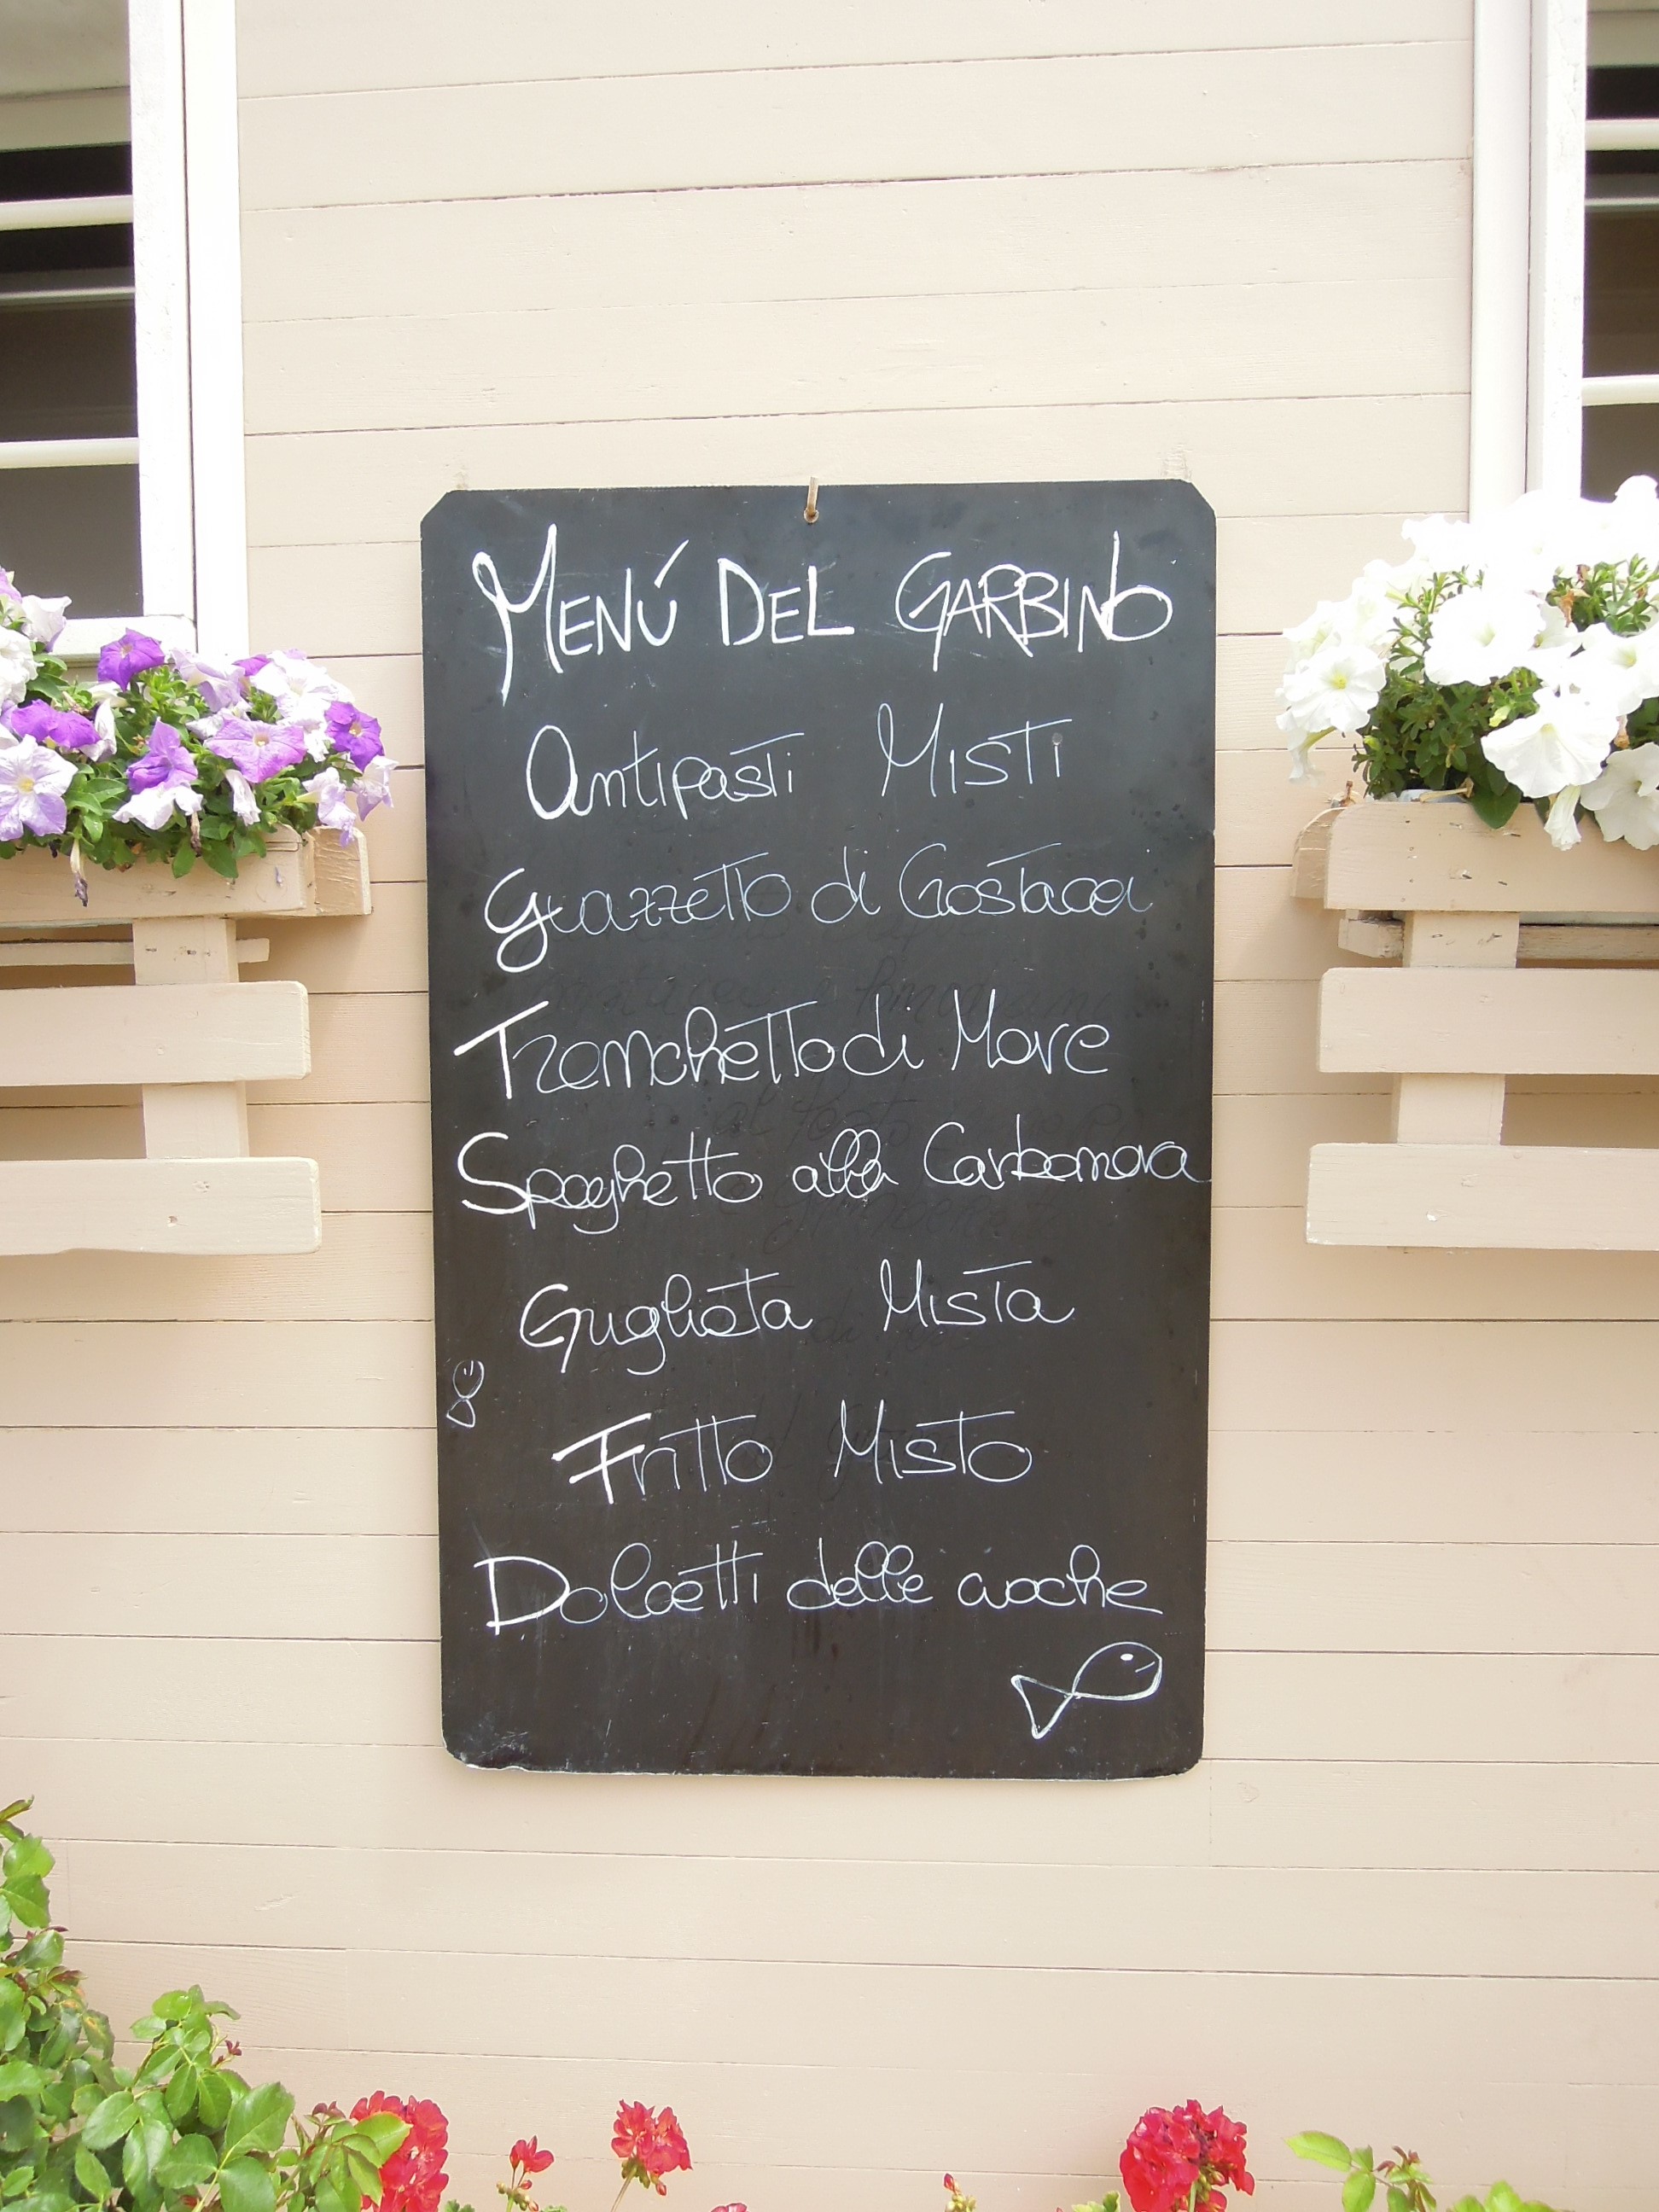 MENÚ DEL GARBINO
Antipasti Misti
Guazzetto di Crostacei
Tranchetto di Mare
Spaghetto alla Carbonara
Gugliata Mista
Fritto Misto
Dolcetti delle cuoche